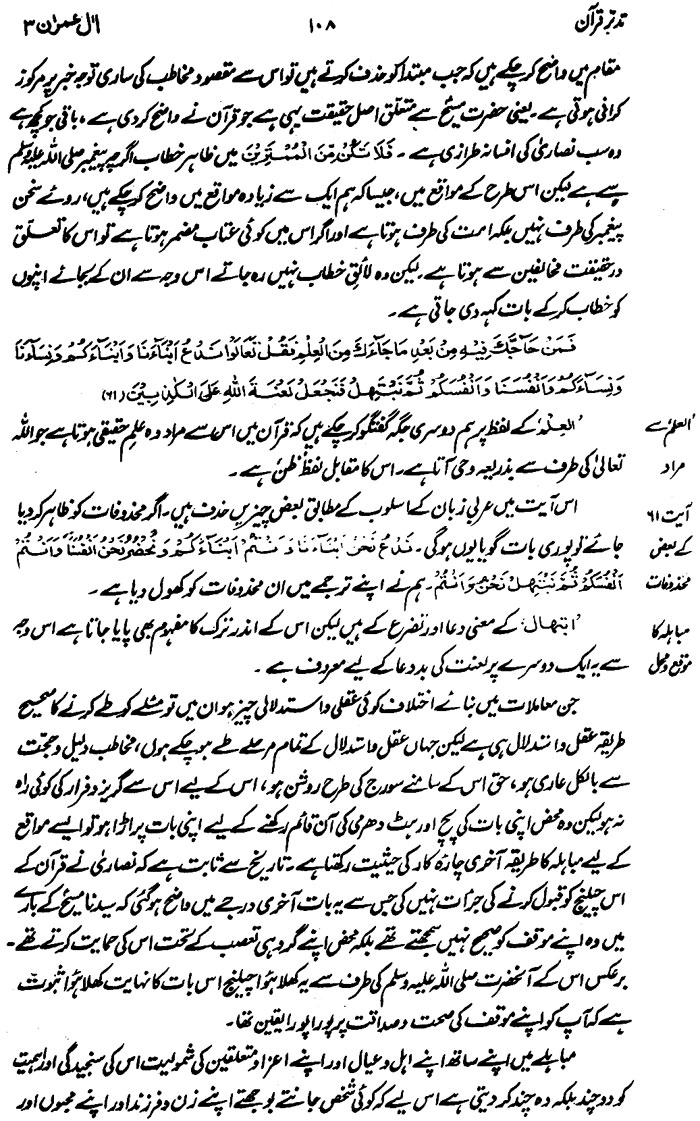 تدبر قرآن ۱۰۸ اٰل عمران ۳
مقام میں واضح کر چکے ہیں کہ جب مبتدا کو حذف کرتے ہیں تو اس سے مقصود مخاطب کی ساری توجہ خبر پر مرکوز
کرانی ہوتی ہے۔ یعنی حضرت مسیح سے متعلق اصل حقیقت یہی ہے جو قرآن نے واضح کر دی ہے، باقی جو کچھ ہے
وہ سب نصاریٰ کی افسانہ طرازی ہے۔ فَلَا تَكُنْ مِّنَ الْمُمْتَرِيْنَ میں ظاہر خطاب اگرچہ پیغمبر صلی اللہ علیہ وسلم
سے ہے لیکن اس طرح کے مواقع میں، جیسا کہ ہم ایک سے زیادہ مواقع میں واضح کر چکے ہیں، روئے سخن
پیغمبر کی طرف نہیں بلکہ امت کی طرف ہوتا ہے اور اگر اس میں کوئی عتاب مضمر ہوتا ہے تو اس کا تعلق
درحقیقت مخالفین سے ہوتا ہے۔ لیکن وہ لائق خطاب نہیں رہ جاتے اس وجہ سے ان کے بجائے اپنوں
کو خطاب کر کے بات کہہ دی جاتی ہے۔
فَمَنْ حَآجَّكَ فِيْهِ مِنْ بَعْدِ مَا جَآءَكَ مِنَ الْعِلْمِ فَقُلْ تَعَالَوْا نَدْعُ اَبْنَآءَنَا وَاَبْنَآءَكُمْ وَنِسَآءَنَا
وَنِسَآءَكُمْ وَاَنْفُسَنَا وَاَنْفُسَكُمْ ثُمَّ نَبْتَهِلْ فَنَجْعَلْ لَّعْنَةَ اللهِ عَلَى الْكٰذِبِيْنَ (۶۱)
'العلم' سے 'العلم' کے لفظ پر ہم دوسری جگہ گفتگو کر چکے ہیں کہ قرآن میں اس سے مراد وہ علم حقیقی ہوتا ہے جو اللہ
مراد تعالیٰ کی طرف سے بذریعہ وحی آتا ہے۔ اس کا مقابل لفظ 'ظن' ہے۔
آیت ۶۱ اس آیت میں عربی زبان کے اسلوب کے مطابق بعض چیزیں حذف ہیں۔ اگر محذوفات کو ظاہر کر دیا
کے بعض جائے تو پوری بات گویا یوں ہوگی۔ نَدْعُ نَحْنُ اَبْنَآءَنَا وَاَنْتُمْ اَبْنَآءَكُمْ وَنُحْضِرُ نَحْنُ اَنْفُسَنَا وَاَنْتُمْ
محذوفات اَنْفُسَكُمْ ثُمَّ نَبْتَهِلْ نَحْنُ وَاَنْتُمْ۔ ہم نے اپنے ترجمے میں ان محذوفات کو کھول دیا ہے۔
مباہلہ کا 'ابتھال' کے معنی دعا اور تضرع کے ہیں لیکن اس کے اندر ترک کا مفہوم بھی پایا جاتا ہے اس وجہ
موقع و محل سے یہ ایک دوسرے پر لعنت کی بددعا کے لیے معروف ہے۔
جن معاملات میں بنائے اختلاف کوئی عقلی و استدلالی چیز ہو ان میں تو مسئلے کو طے کرنے کا صحیح
طریقہ عقل و استدلال ہی ہے لیکن جہاں عقل و استدلال کے تمام مرحلے طے ہو چکے ہوں، مخاطب دلیل و حجت
سے بالکل عاری ہو، حق اس کے سامنے سورج کی طرح روشن ہو، اس کے لیے اس سے گریز و فرار کی کوئی راہ
نہ ہو لیکن وہ محض اپنی بات کی پچ اور ہٹ دھرمی کی آن قائم رکھنے کے لیے اپنی بات پر اڑا ہو تو ایسے مواقع
کے لیے مباہلہ کا طریقہ آخری چارۂ کار کی حیثیت رکھتا ہے۔ تاریخ سے ثابت ہے کہ نصاریٰ نے قرآن کے
اس چیلنج کو قبول کرنے کی جرأت نہیں کی جس سے یہ بات آخری درجے میں واضح ہو گئی کہ سیدنا مسیح کے بارے
میں وہ اپنے موقف کو صحیح نہیں سمجھتے تھے بلکہ محض اپنے گروہی تعصب کے تحت اس کی حمایت کرتے تھے۔
برعکس اس کے آنحضرت صلی اللہ علیہ وسلم کی طرف سے یہ کھلا ہوا چیلنج اس بات کا نہایت کھلا ہوا ثبوت
ہے کہ آپ کو اپنے موقف کی صحت و صداقت پر پورا پورا یقین تھا۔
مباہلے میں اپنے ساتھ اپنے اہل و عیال اور اپنے اعزا و متعلقین کی شمولیت اس کی سنجیدگی اور اہمیت
کو دو چند بلکہ دہ چند کر دیتی ہے اس لیے کہ کوئی شخص جانتے بوجھتے اپنے زن و فرزند اور اپنے محبوں اور